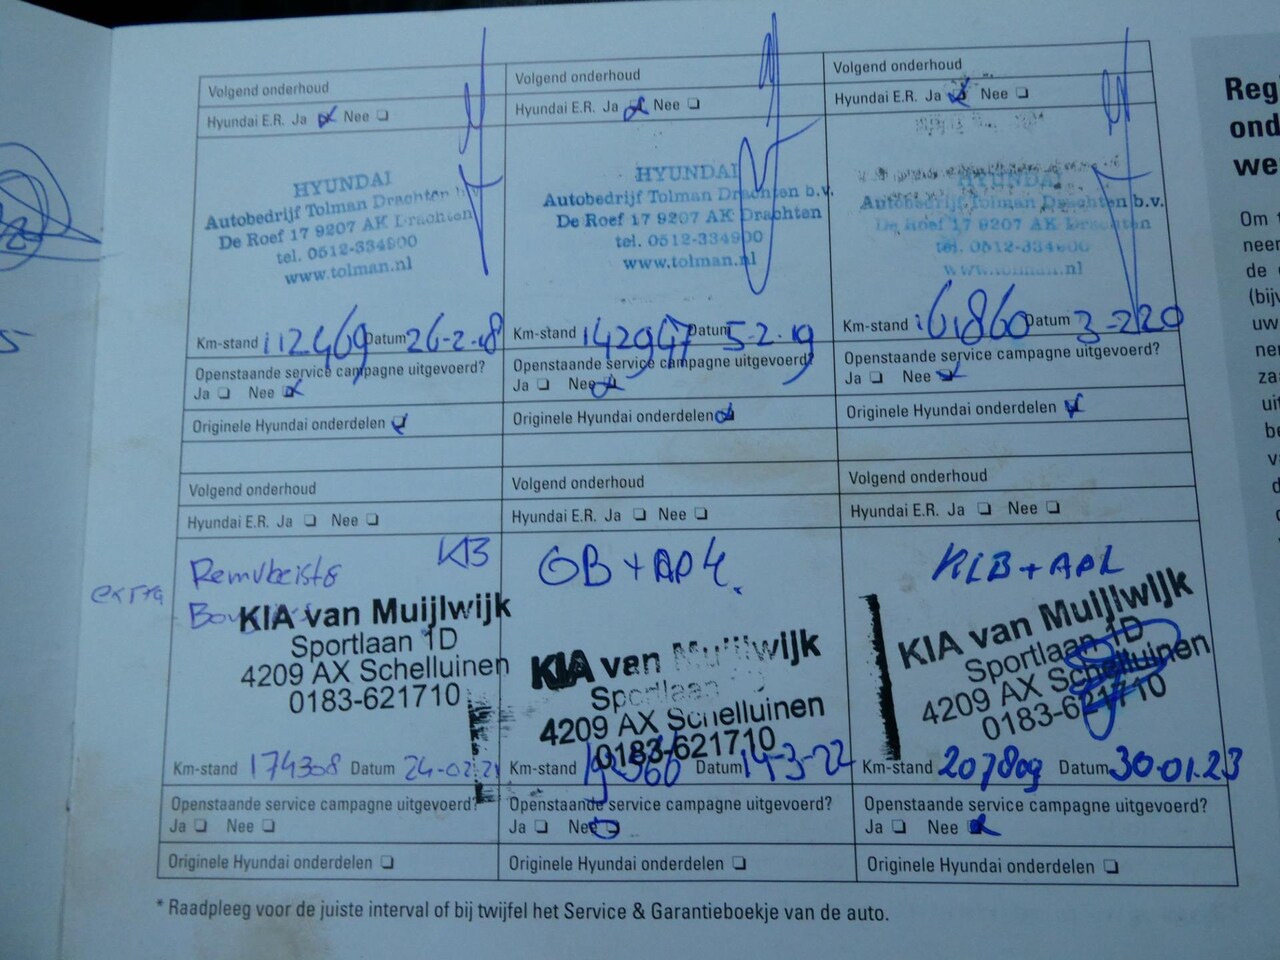 Volgend onderhoud
Hyundai E.R. Ja Nee
HYUNDAI
Autobedrijf Tolman Drachten
De Roef 17 9207 AK Drachten
tel. 0512-334900
www.tolman.nl
Km-stand 112469 Datum 26-2-18
Openstaande service campagne uitgevoerd?
Ja Nee
Originele Hyundai onderdelen
Volgend onderhoud
Hyundai E.R. Ja Nee
HYUNDAI
Autobedrijf Tolman Drachten b.v.
De Roef 17 9207 AK Drachten
tel. 0512-334900
www.tolman.nl
Km-stand 142947 Datum 5-2-19
Openstaande service campagne uitgevoerd?
Ja Nee
Originele Hyundai onderdelen
Volgend onderhoud
Hyundai E.R. Ja Nee
HYUNDAI
Autobedrijf Tolman Drachten b.v.
De Roef 17 9207 AK Drachten
tel. 0512-334900
www.tolman.nl
Km-stand 161860 Datum 3-2-20
Openstaande service campagne uitgevoerd?
Ja Nee
Originele Hyundai onderdelen
Volgend onderhoud
Hyundai E.R. Ja Nee
KB
extra
KIA van Muijlwijk
Sportlaan 1D
4209 AX Schelluinen
0183-621710
Km-stand 174308 Datum 24-02-21
Openstaande service campagne uitgevoerd?
Ja Nee
Originele Hyundai onderdelen
Volgend onderhoud
Hyundai E.R. Ja Nee
GB + APK
KIA van Muijlwijk
Sportlaan 1D
4209 AX Schelluinen
0183-621710
Km-stand Datum 14-3-22
Openstaande service campagne uitgevoerd?
Ja Nee
Originele Hyundai onderdelen
Volgend onderhoud
Hyundai E.R. Ja Nee
KLB + APK
KIA van Muijlwijk
Sportlaan 1D
4209 AX Schelluinen
0183-621710
Km-stand 207809 Datum 30-01-23
Openstaande service campagne uitgevoerd?
Ja Nee
Originele Hyundai onderdelen
* Raadpleeg voor de juiste interval of bij twijfel het Service & Garantieboekje van de auto.
Reg
ond
we
Om
neer
de
(bijv
uw
zaa
uit
be